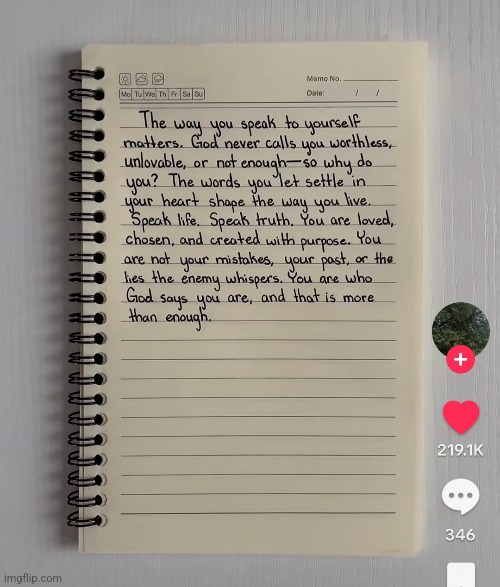 Memo No.
Mo Tu We Th Fr Sa Su
Date: / /
The way you speak to yourself
matters. God never calls you worthless,
unlovable, or not enough—so why do
you? The words you let settle in
your heart shape the way you live.
Speak life. Speak truth. You are loved,
chosen, and created with purpose. You
are not your mistakes, your past, or the
lies the enemy whispers. You are who
God says you are, and that is more
than enough.
219.1K
346
imgflip.com